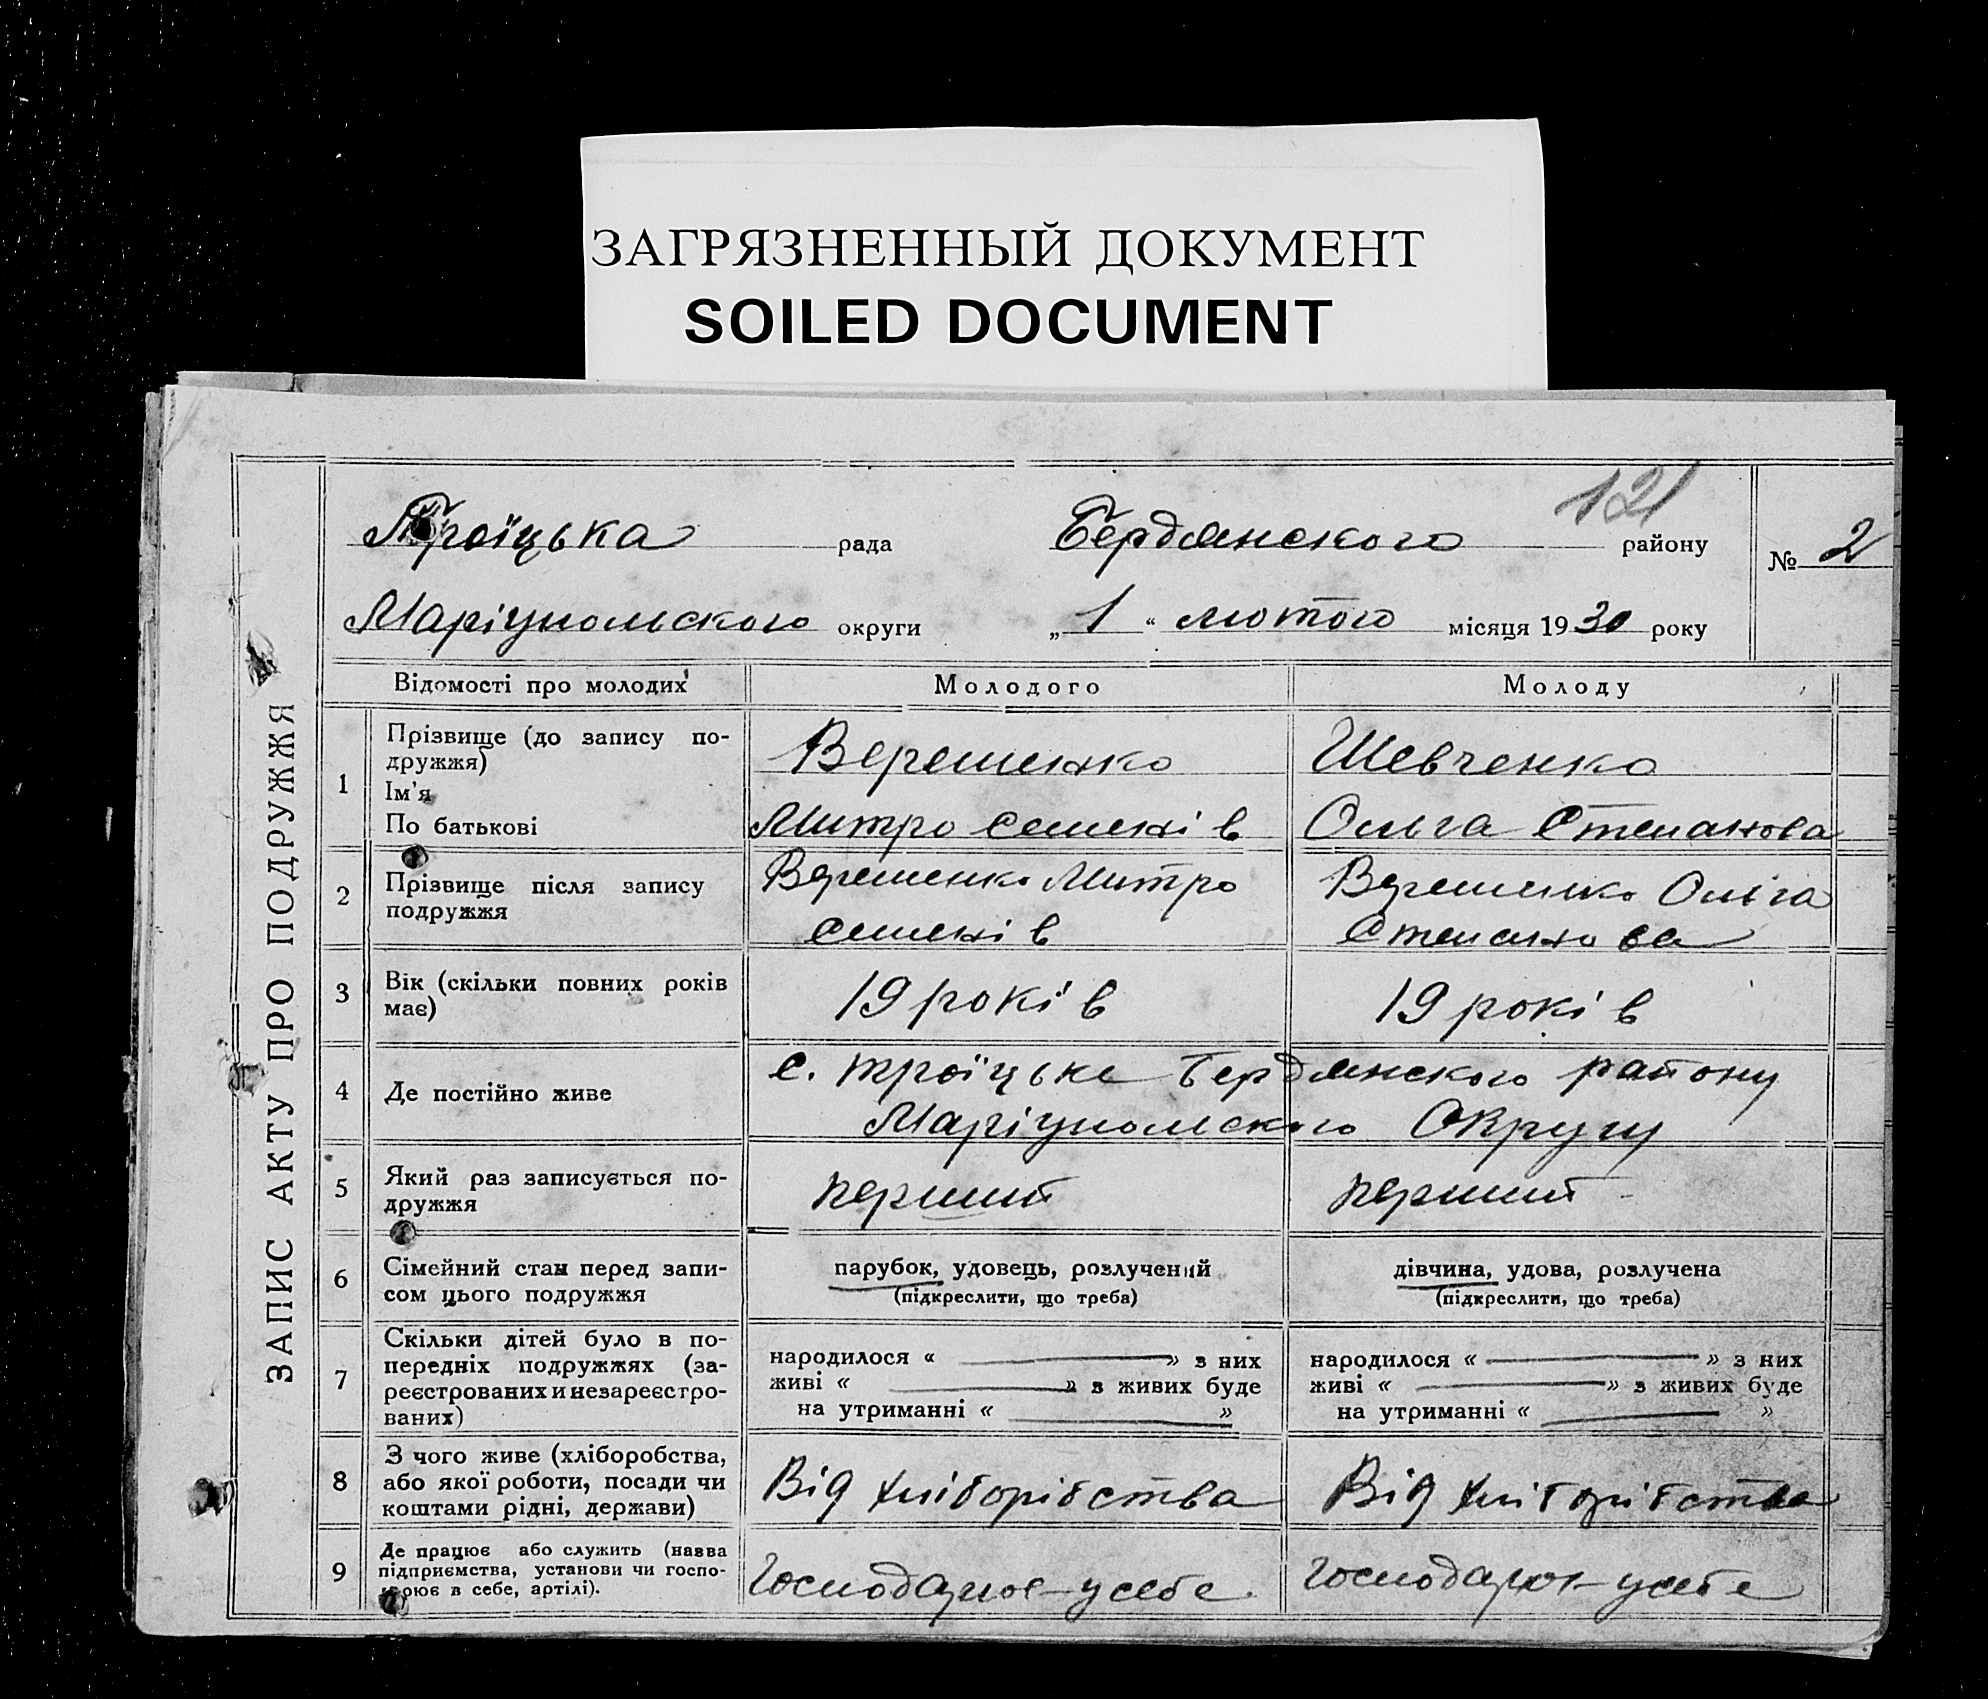 ЗАГРЯЗНЕННЫЙ ДОКУМЕНТ
SOILED DOCUMENT
121
Троїцька рада Бердянского району № 2
Маріупольского округи „ 1 “ лютого місяця 1930 року
ЗАПИС АКТУ ПРО ПОДРУЖЖЯ
Відомості про молодих Молодого Молоду
1 Прізвище (до запису по-
дружжя)
Ім'я
По батькові
Верешенко
Митро Семенів
Шевченко
Ольга Степанова
2 Прізвище після запису
подружжя
Верешенко Митро
Семенів
Верешенко Ольга
Степанова
3 Вік (скільки повних років
має)
19 років
19 років
4 Де постійно живе
с. Троїцьке Бердянского району
Маріупольского Округу
5 Який раз записується по-
дружжя
перший
перший
6 Сімейний стан перед запи-
сом цього подружжя
парубок, удовець, розлучений
(підкреслити, що треба)
дівчина, удова, розлучена
(підкреслити, що треба)
7 Скільки дітей було в по-
передніх подружжях (за-
реєстрованих и незареєстро-
ваних)
народилося « — » з них
живі « — » з живих буде
на утриманні « — »
народилося « — » з них
живі « — » з живих буде
на утриманні « — »
8 З чого живе (хліборобства,
або якої роботи, посади чи
коштами рідні, держави)
Від хліборібства
Від хліборібства
9 Де працює або служить (назва
підприємства, установи чи госпо-
рює в себе, артілі).
Господарює – у себе
Господарює – у себе